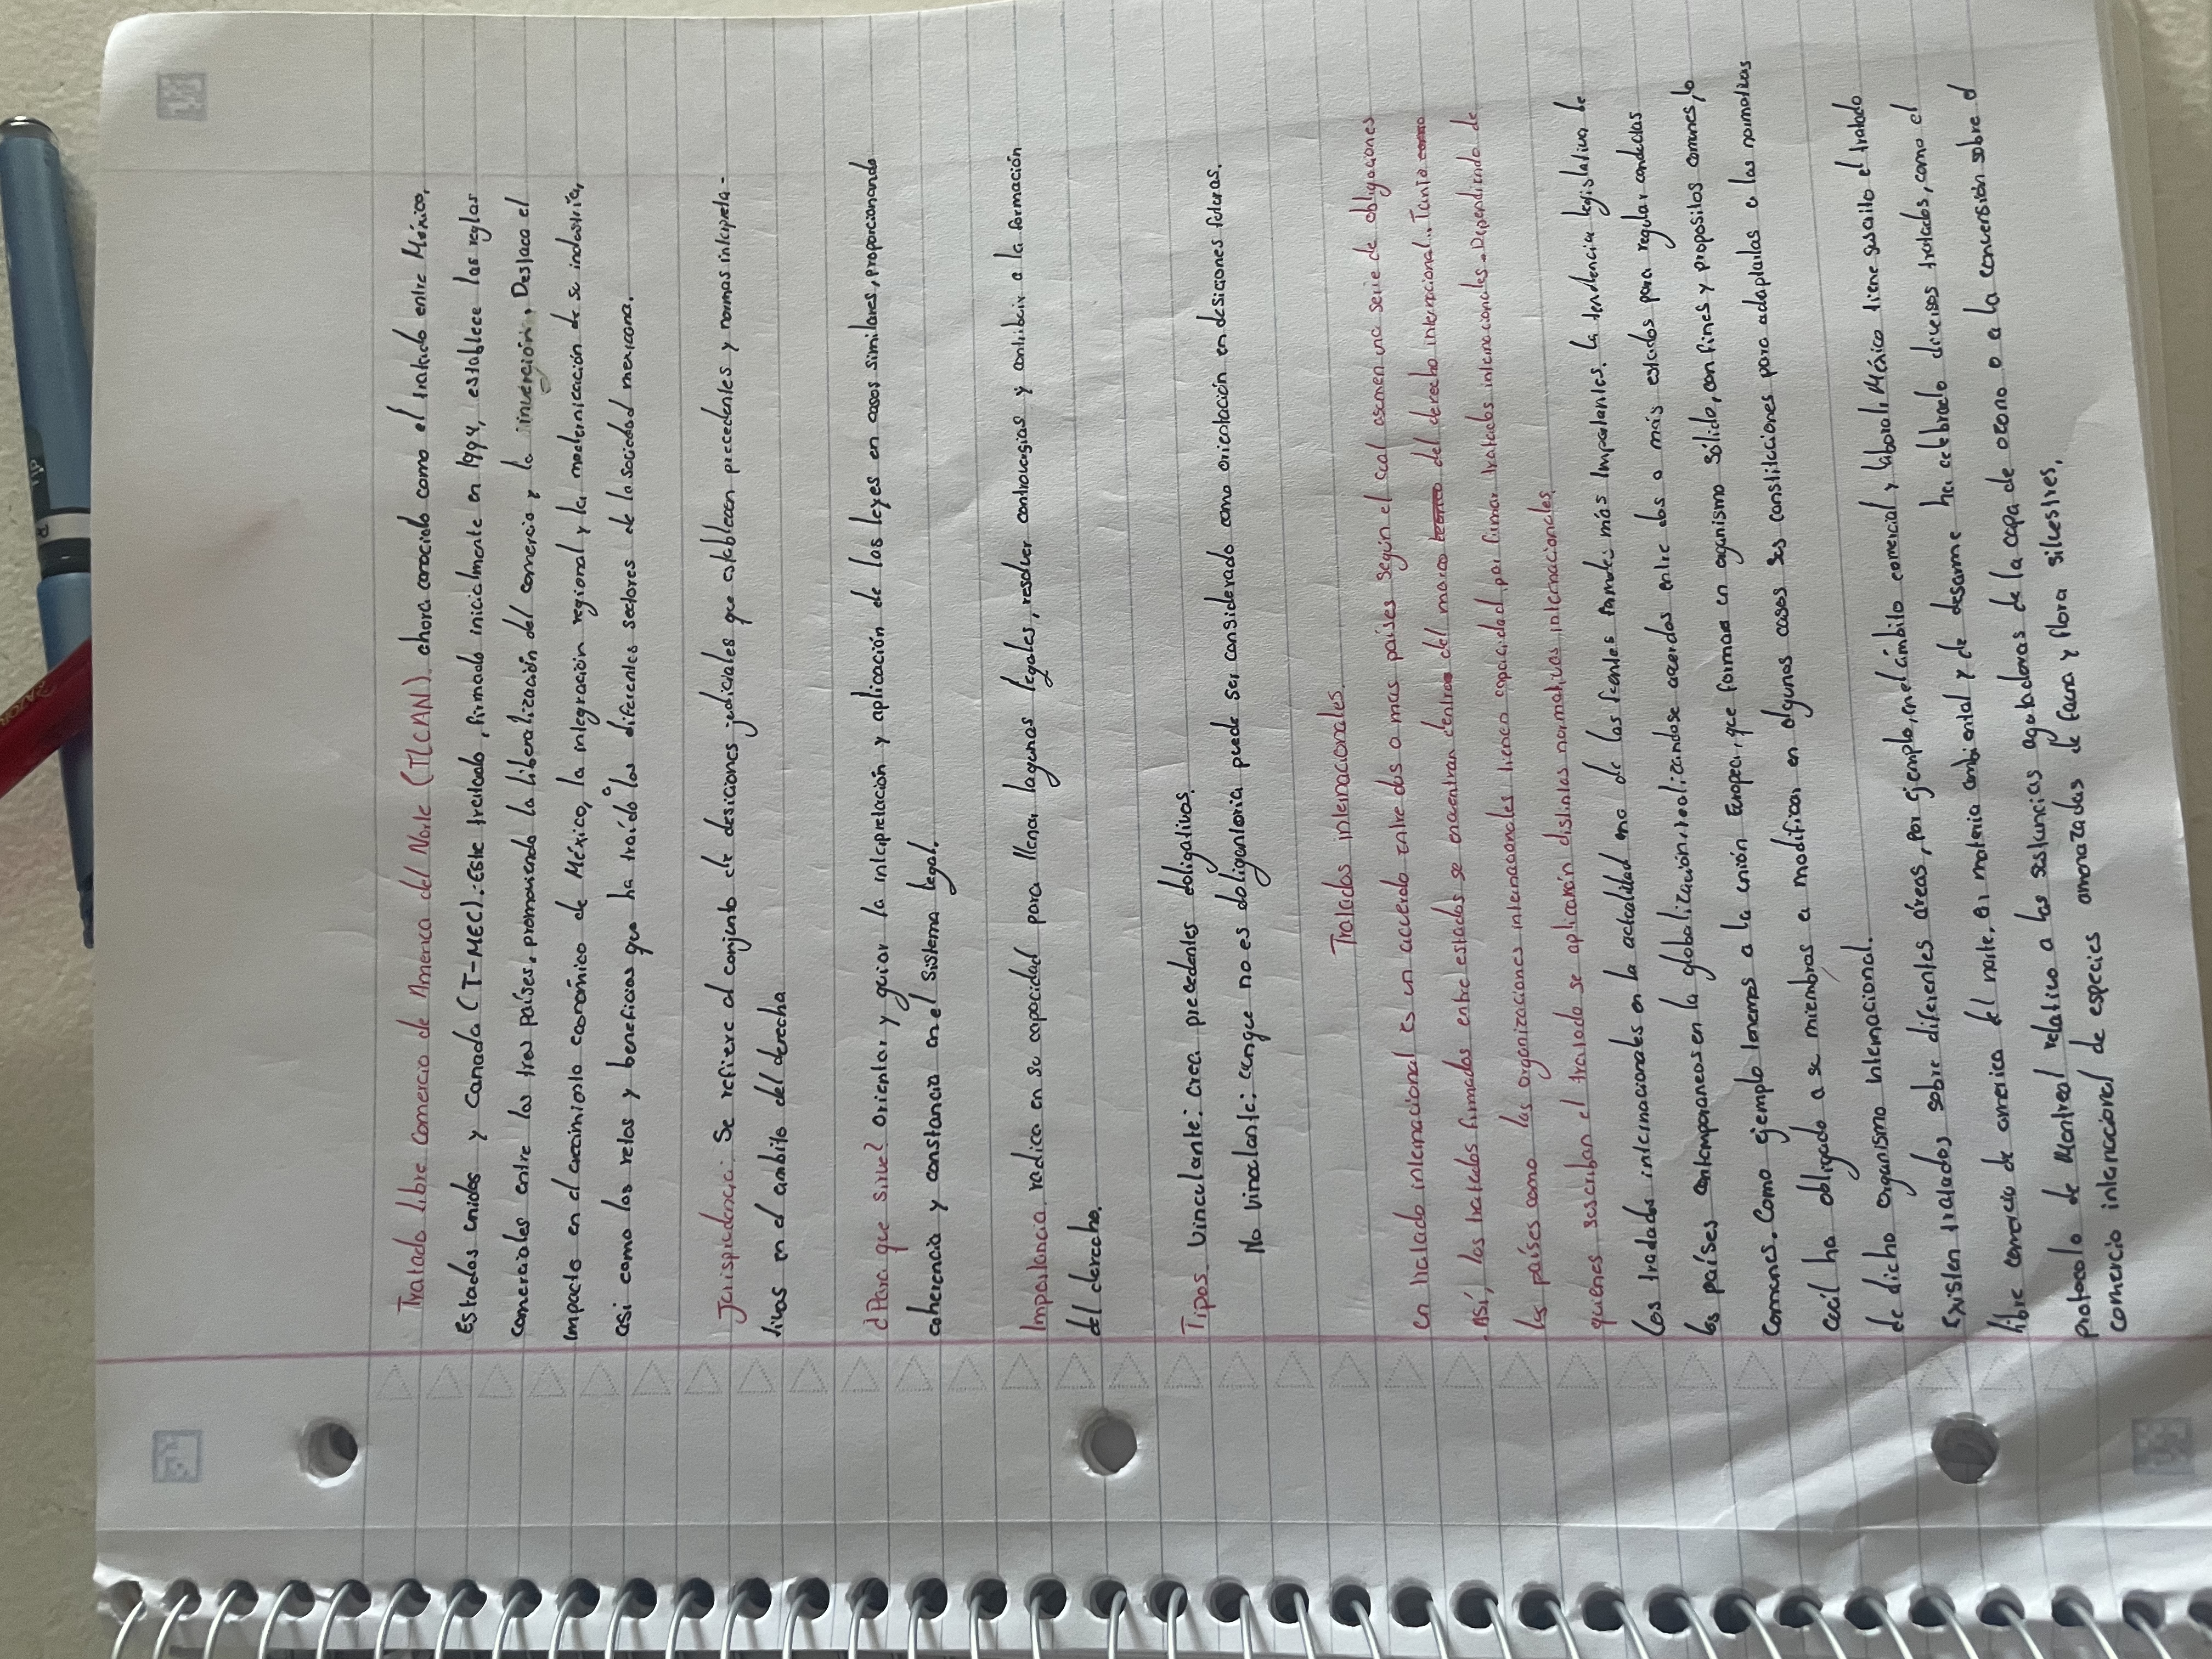 Tratado libre Comercio de America del Norte (TLCAN). ahora conocido como el tratado entre México,
Estados unidos y Canadá (T-MEC): Este tratado, firmado inicialmente en 1994, establece las reglas
comerciales entre los tres países, promoviendo la liberalización del comercio y la inverción. Destaca el
impacto en el crecimiento económico de México, la integración regional y la modernización de su industria,
asi como los retos y beneficios que ha traído a los diferentes sectores de la sociedad mexicana.
Jurispudencia: Se refiere al conjunto de desiciones judiciales que establecen precedentes y normas interpreta-
tivas en el ambito del derecho
¿Para que sirve? orientar y guiar la interpretación y aplicación de las leyes en casos similares, proporcionando
coherencia y constancia en el sistema legal.
Importancia. radica en su capacidad para llenar lagunas legales, resolver controversias y contribuir a la formación
del derecho.
Tipos. Vinculante: crea precedentes obligativos.
No vinculante: aunque no es obligantoria puede ser considerado como orientación en desiciones futuras.
Tratados internacionales.
un tratado internacional es un acuerdo entre dos o mas países según el cual asumen una serie de obligaciones
. Así, los tratados firmados entre estados se encuentran dentro del marco del derecho internacional. Tanto como
los países como las organizaciones internacionales tienen capacidad por firmar tratados internacionales. Dependiendo de
quienes suscriban el tratado se aplicarán distintas normativas internacionales.
Los tradados internacionales en la actualidad uno de las fuentes formales más importantes. la tendencia legislativa de
los países contemporaneos en la globalización: realizandose acuerdos entre dos o más estados para regular conductas
comunes. Como ejemplo tenemos a la unión Europea, que forman un organismo sólido, con fines y propositos comunes, lo
cual ha obligado a su miembros a modificar en algunos casos sus constituciones para adaptarlas a las normativas
de dicho organismo internacional.
Existen tratados sobre diferentes áreas, por ejemplo, en el ámbito comercial y laboral, México tiene suscrito el tratado
libre comercio de america del norte, en materia ambiental y de desarme ha celebrado diversos tratados, como el
protocolo de Montreal relativo a las sustancias agotadoras de la capa de ozono o a la convensión sobre el
comercio internacional de especies amenazadas de fauna y flora silvestres.